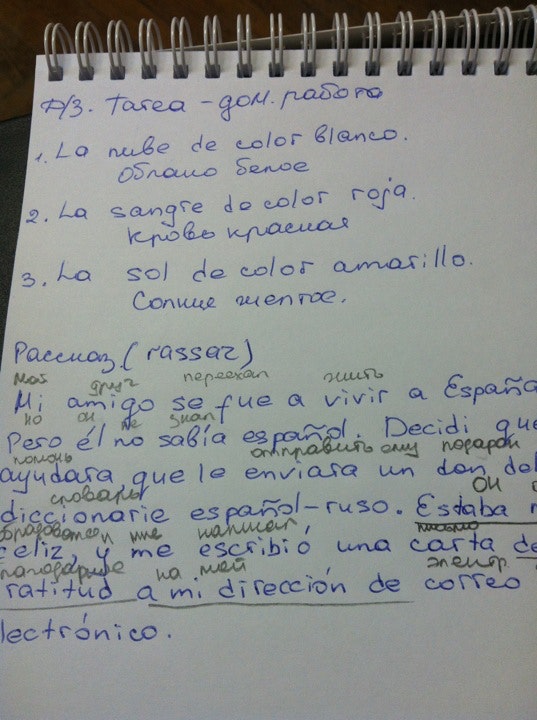 Д/З. Tarea - дом. работа
1. La nube de color blanco.
Облако белое
2. La sangre de color roja.
Кровь красная
3. La sol de color amarillo.
Солнце желтое.
Рассказ (rassaz)
мой друг переехал жить
Mi amigo se fue a vivir a España
но он не знал
Pero él no sabía español. Decidi que
помочь отправить ему подарок
ayudara, que le enviara un don del
словарь он
diccionarie español-ruso. Estaba
мне написал письмо
eliz, y me escribió una carta de
на мой электр
ratitud a mi dirección de correo
lectrónico.